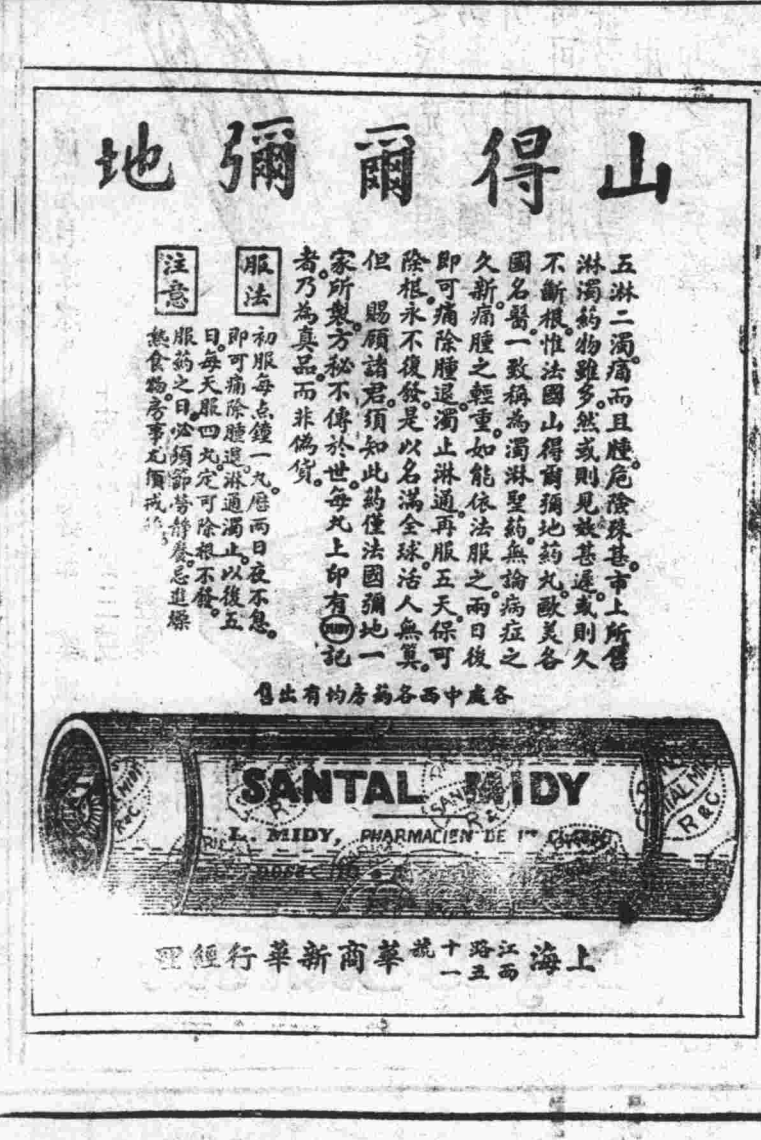 山得爾彌地
五淋二濁。痛而且腫。危險殊甚。市上所售
淋濁葯物雖多。然或則見效甚遲。或則久
不斷根。惟法國山得爾彌地葯丸。歐美各
國名醫。一致稱為濁淋聖葯。無論病症之
久新。痛腫之輕重。如能依法服之。兩日後
即可痛除腫退。濁止淋通。再服五天。保可
除根。永不復發。是以名滿全球。活人無算。
但　賜顧諸君。須知此葯僅法國彌地一
家所製。方秘不傳於世。每丸上印有MIDY記
者。乃為真品。而非偽貨。
服法
初服每点鐘一丸。歷兩日夜不息。
即可痛除腫退。淋通濁止。以後五
日。每天服四丸。定可除根不發。
注意
服葯之日。必須節勞靜養。忌進燥
熱食物。房事尤須戒
各處中西各葯房均有出售
SANTAL MIDY
L. MIDY, PHARMACIEN DE 1re CLASSE
上海江西路五十一號華商新華行經理